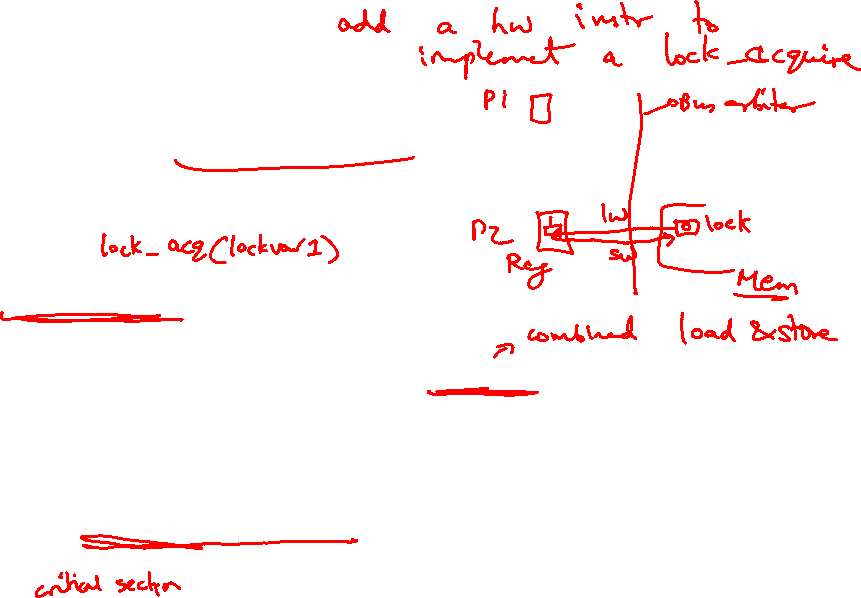 add a hw instr to
implement a lock_acquire
P1
Bus arbiter
lock_acq(lockvar1)
P2
1
lw
0
lock
sw
Reg
Mem
combined load & store
critical section